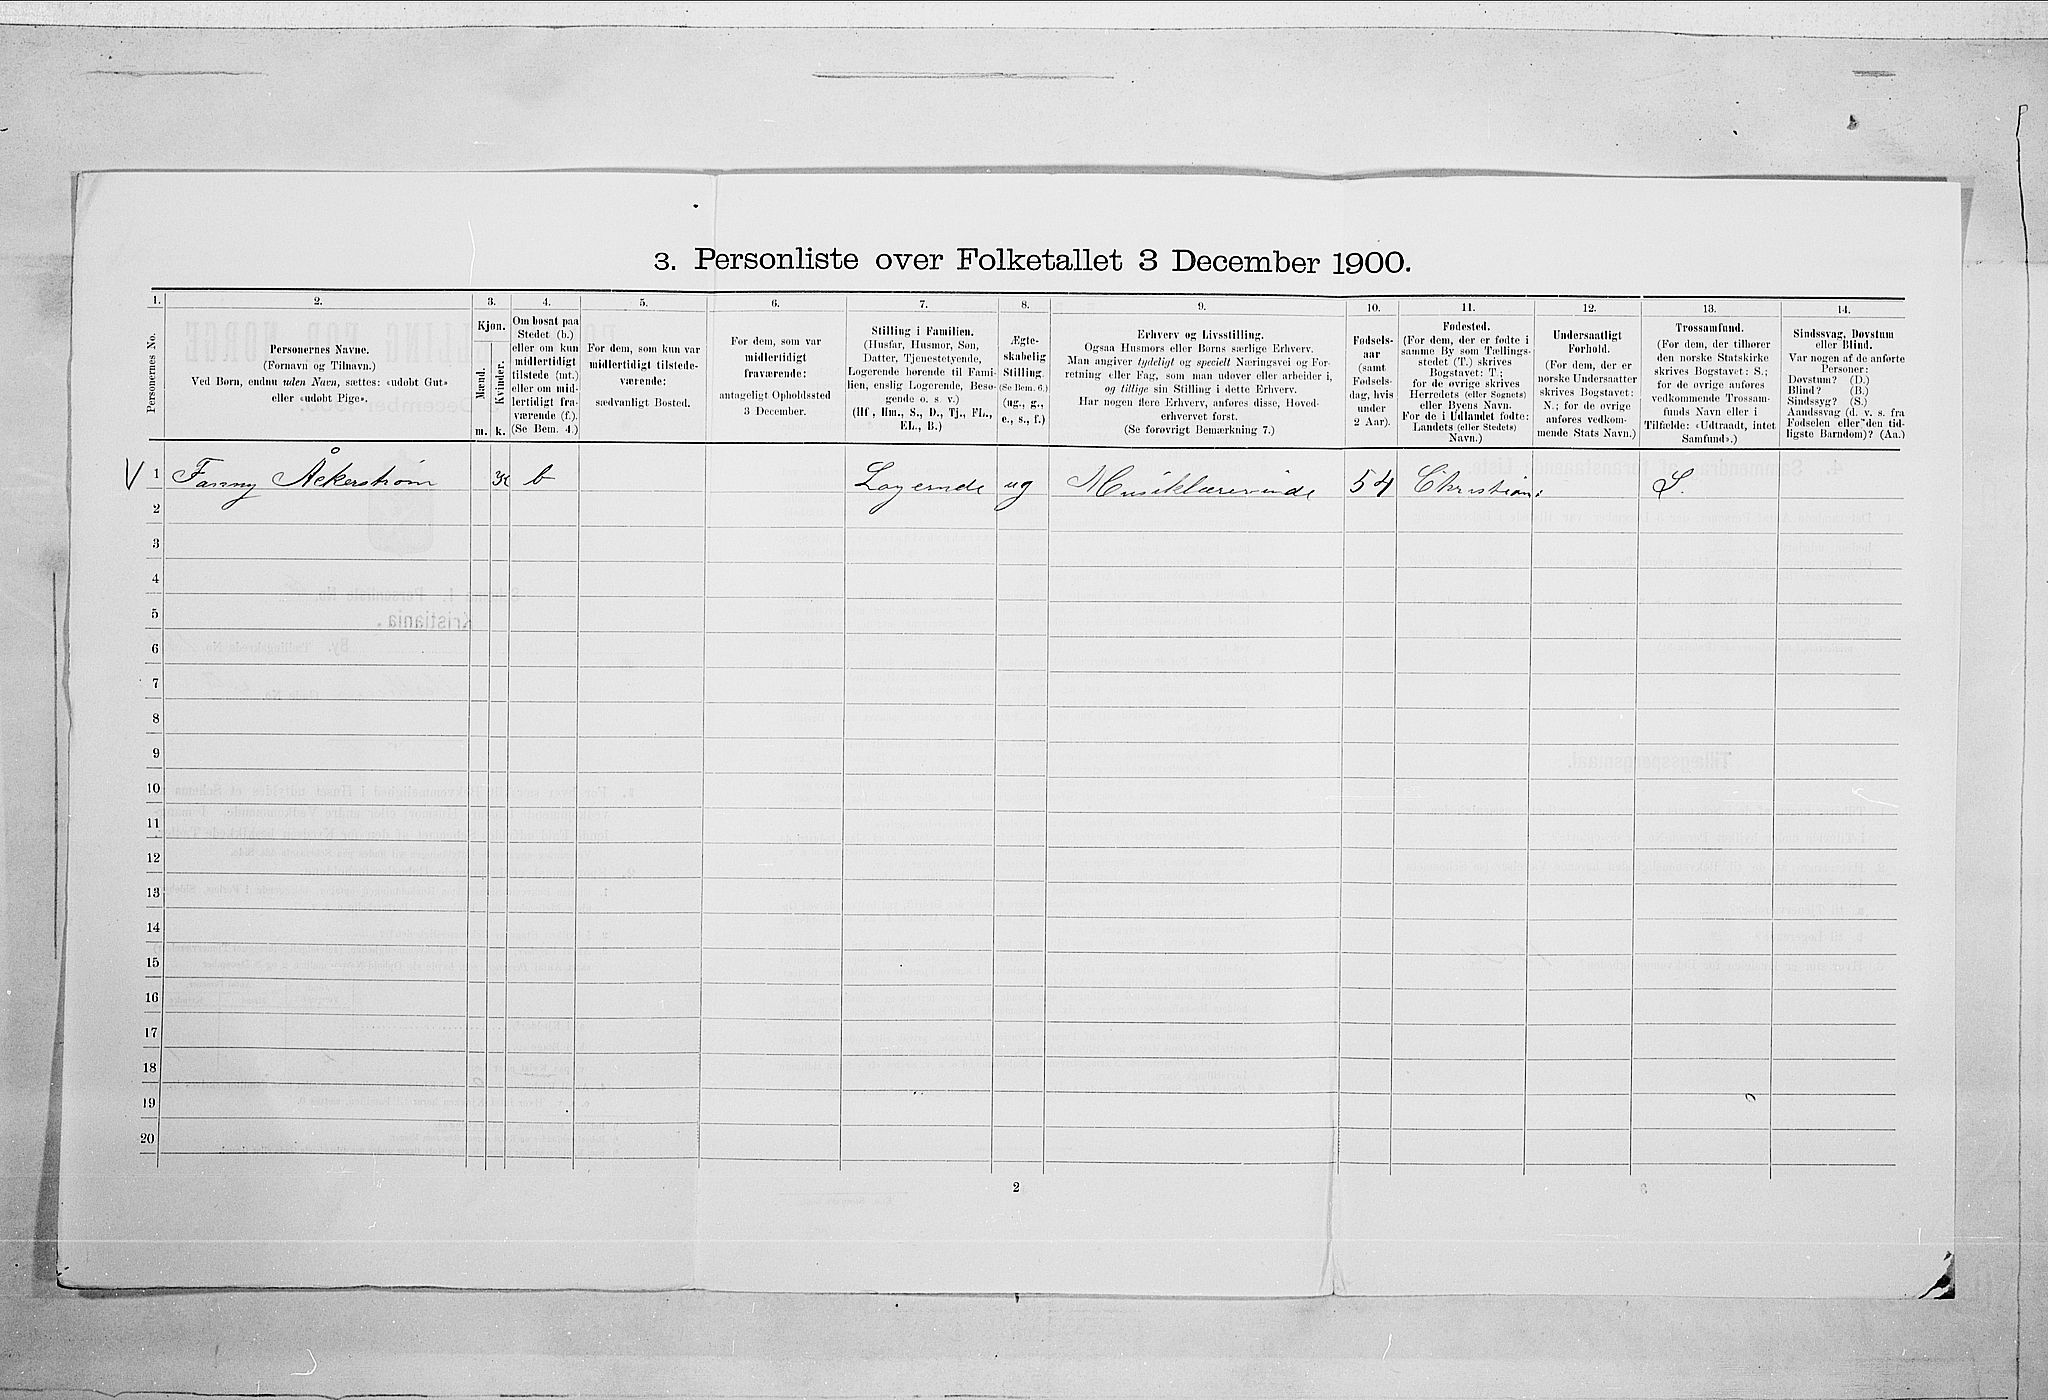 3. Personliste over Folketallet 3 December 1900.
1. 2. 3. 4. 5. 6. 7. 8. 9. 10. 11. 12. 13. 14.
Personernes No.
Personernes Navne.
(Fornavn og Tilnavn.)
Ved Børn, endnu uden Navn, sættes: «udøbt Gut»
eller «udøbt Pige».
Kjøn.
Mænd.
Kvinder.
m. k.
Om bosat paa
Stedet (b.)
eller om kun
midlertidigt
tilstede (mt.)
eller om mid-
lertidigt fra-
værende (f.).
(Se Bem. 4.)
For dem, som kun var
midlertidigt tilstede-
værende:
sædvanligt Bosted.
For dem, som var
midlertidigt
fraværende:
antageligt Opholdssted
3 December.
Stilling i Familien.
(Husfar, Husmor, Søn,
Datter, Tjenestetyende,
Logerende hørende til Fami-
lien, enslig Logerende, Besø-
gende o. s. v.)
(Hf., Hm., S., D., Tj., FL.,
EL., B.)
Ægte-
skabelig
Stilling.
(Se Bem. 6.)
(ug., g.,
e., s., f.)
Erhverv og Livsstilling.
Ogsaa Husmors eller Børns særlige Erhverv.
Man angiver tydeligt og specielt Næringsvei og For-
retning eller Fag, som man udøver eller arbeider i,
og tillige sin Stilling i dette Erhverv.
Har nogen flere Erhverv, anføres disse, Hoved-
erhvervet først.
(Se forøvrigt Bemærkning 7.)
Fødsels-
aar
(samt
Fødsels-
dag, hvis
under
2 Aar).
Fødested.
(For dem, der er fødte i
samme By som Tællings-
stedet (T.) skrives
Bogstavet: T.;
for de øvrige skrives
Herredets (eller Sognets)
eller Byens Navn.
For de i Udlandet fødte:
Landets (eller Stedets)
Navn.)
Undersaatligt
Forhold.
(For dem, der er
norske Undersaatter
skrives Bogstavet:
N.; for de øvrige
anføres vedkom-
mende Stats Navn.)
Trossamfund.
(For dem, der tilhører
den norske Statskirke
skrives Bogstavet: S.;
for de øvrige anføres
vedkommende Trossam-
funds Navn eller i
Tilfælde: «Udtraadt, intet
Samfund».)
Sindssvag, Døvstum
eller Blind.
Var nogen af de anførte
Personer:
Døvstum? (D.)
Blind? (B.)
Sindssyg? (S.)
Aandssvag (d. v. s. fra
Fødselen eller den tid-
ligste Barndom)? (Aa.)
1 Fanny Åkerstrøm k b Logerende ug Musiklærerinde 54 Christian: S.
2
3
4
5
6
7
8
9
10
11
12
13
14
15
16
17
18
19
20
2